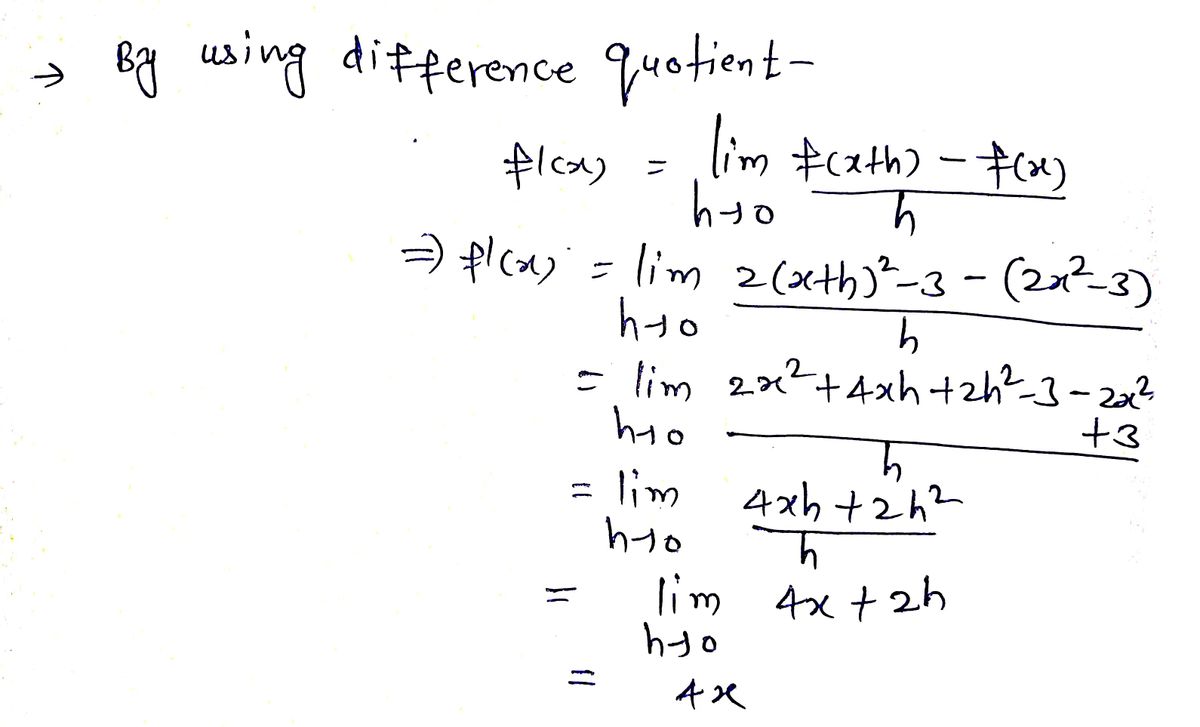 → By using difference quotient-
f'(x) = lim h→0 f(x+h) - f(x) / h
⇒ f'(x) = lim h→0 2(x+h)²-3 - (2x²-3) / h
= lim h→0 2x²+4xh+2h²-3-2x²+3 / h
= lim h→0 4xh+2h² / h
= lim h→0 4x+2h
= 4x